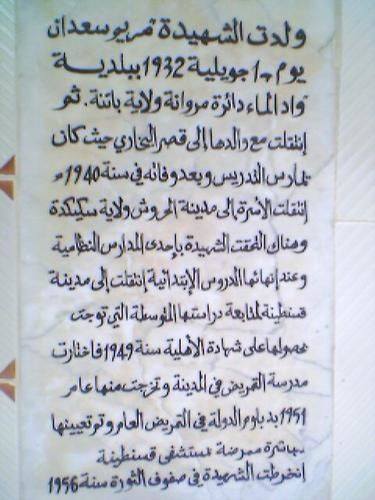 ولدت الشهيدة مريم سعدان
يوم 10 جويلية 1932 ببلدية
واد الماء دائرة مروانة ولاية باتنة. ثم
إنتقلت مع والدها إلى قصر البخاري حيث كان
يمارس التدريس وبعد وفاته في سنة 1940م
إنتقلت الأسرة إلى مدينة الحروش ولاية سكيكدة
وهناك التحقت الشهيدة بإحدى المدارس النظامية
وعند إنهائها الدروس الإبتدائية إنتقلت إلى مدينة
قسنطينة لمتابعة دراستها المتوسطة التي توجت
بحصولها على شهادة الأهلية سنة 1949 فاختارت
مدرسة التمريض في المدينة وتخرجت منها عام
1951 بدبلوم الدولة في التمريض العام وتم تعيينها
مباشرة ممرضة بمستشفى قسنطينة
إنخرطت الشهيدة في صفوف الثورة سنة 1956